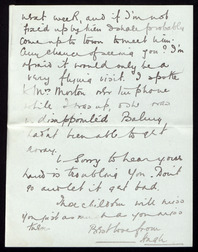 next week, and if I'm not
tied up by then I shall probably
come up to town to meet him.
Any chance of seeing you? I'm
afraid it would only be a
very flying visit. I spoke
to Mrs Morton over the phone
while I was up, & she was
disappointed
hadn't been able to get
away.
Sorry to hear your
hand is troubling you. Don't
go and let it get bad.
The children will miss
you just as much as you miss
them. Best love from